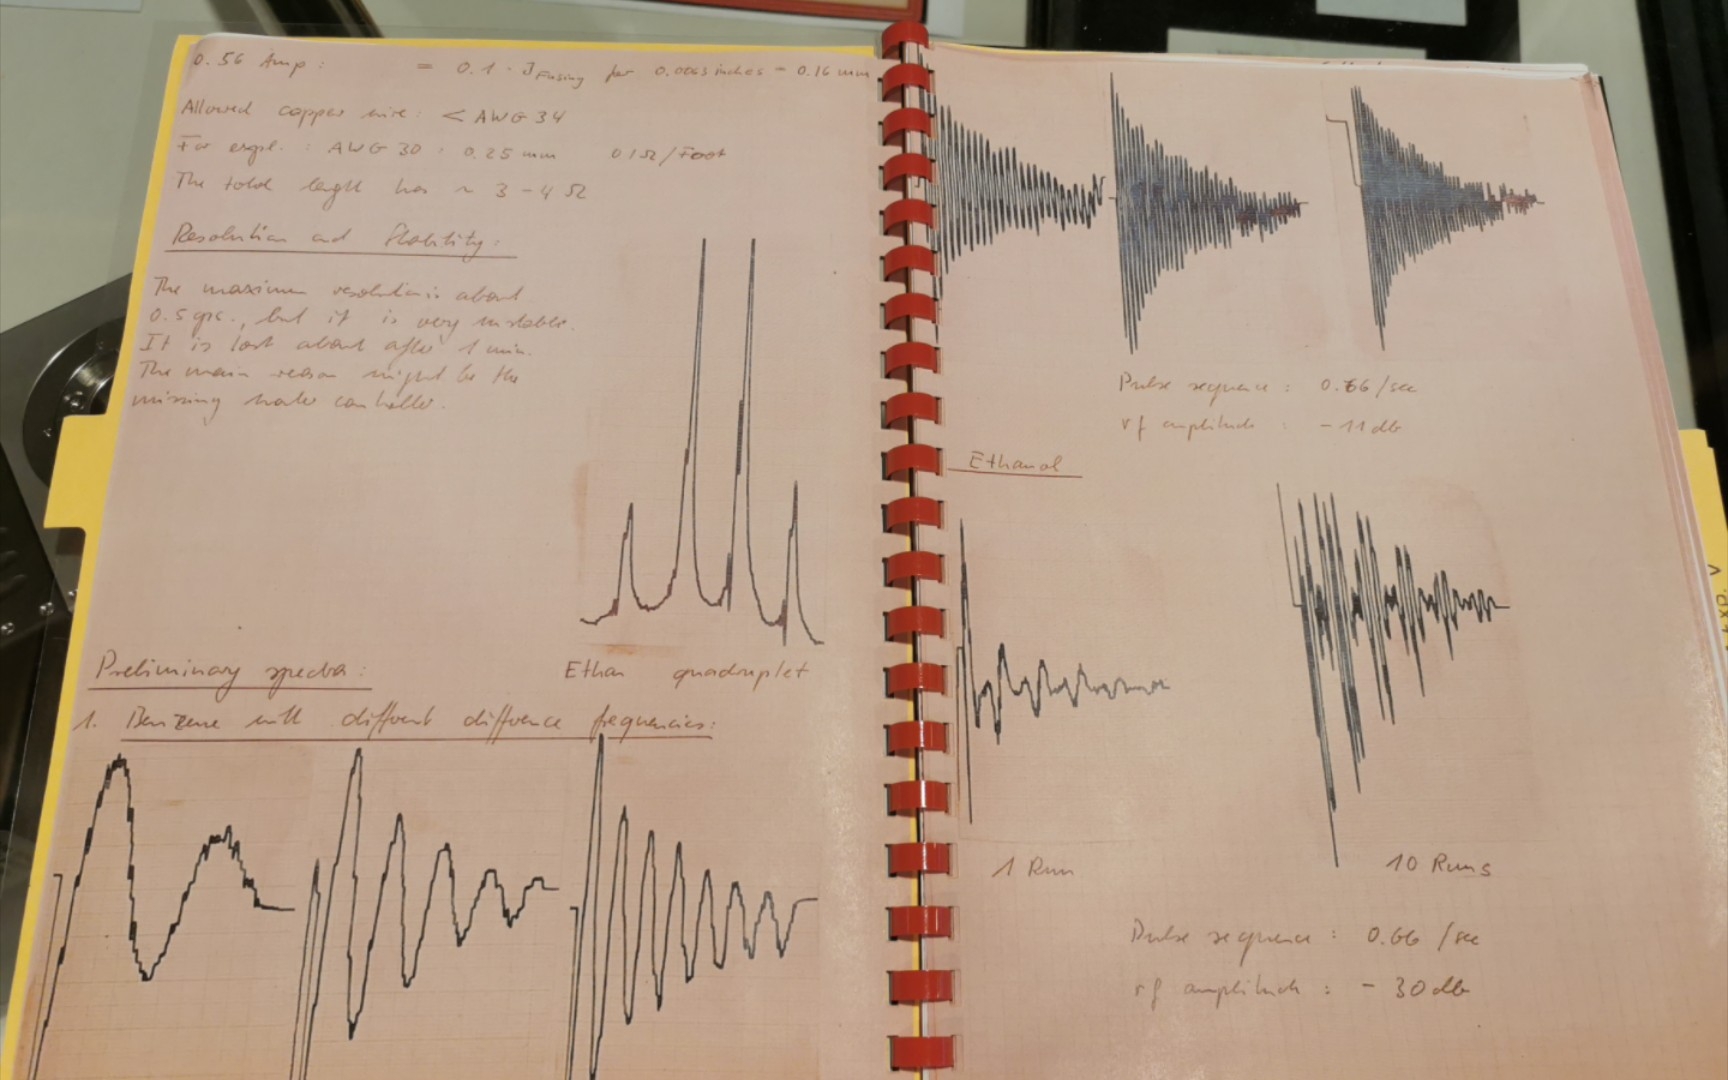 0.56 Amp : = 0.1 · J Fusing for 0.0063 inches = 0.16 mm
Allowed copper wire : < AWG 34
For expl. : AWG 30 : 0.25 mm 0.1 Ω/Foot
The total length has ~ 3 - 4 Ω
Resolution and Stability :
The maximum resolution is about
0.5 cps., but it is very unstable.
It is lost about after 1 min.
The main reason might be the
missing water controller.
Ethan quadruplet
Preliminary spectra :
1. Benzene with different diffrence frequencies :
Pulse sequence : 0.66 /sec
rf amplitude : - 11 db
Ethanol
1 Run
10 Runs
Pulse sequence : 0.66 /sec
rf amplitude : - 30 db